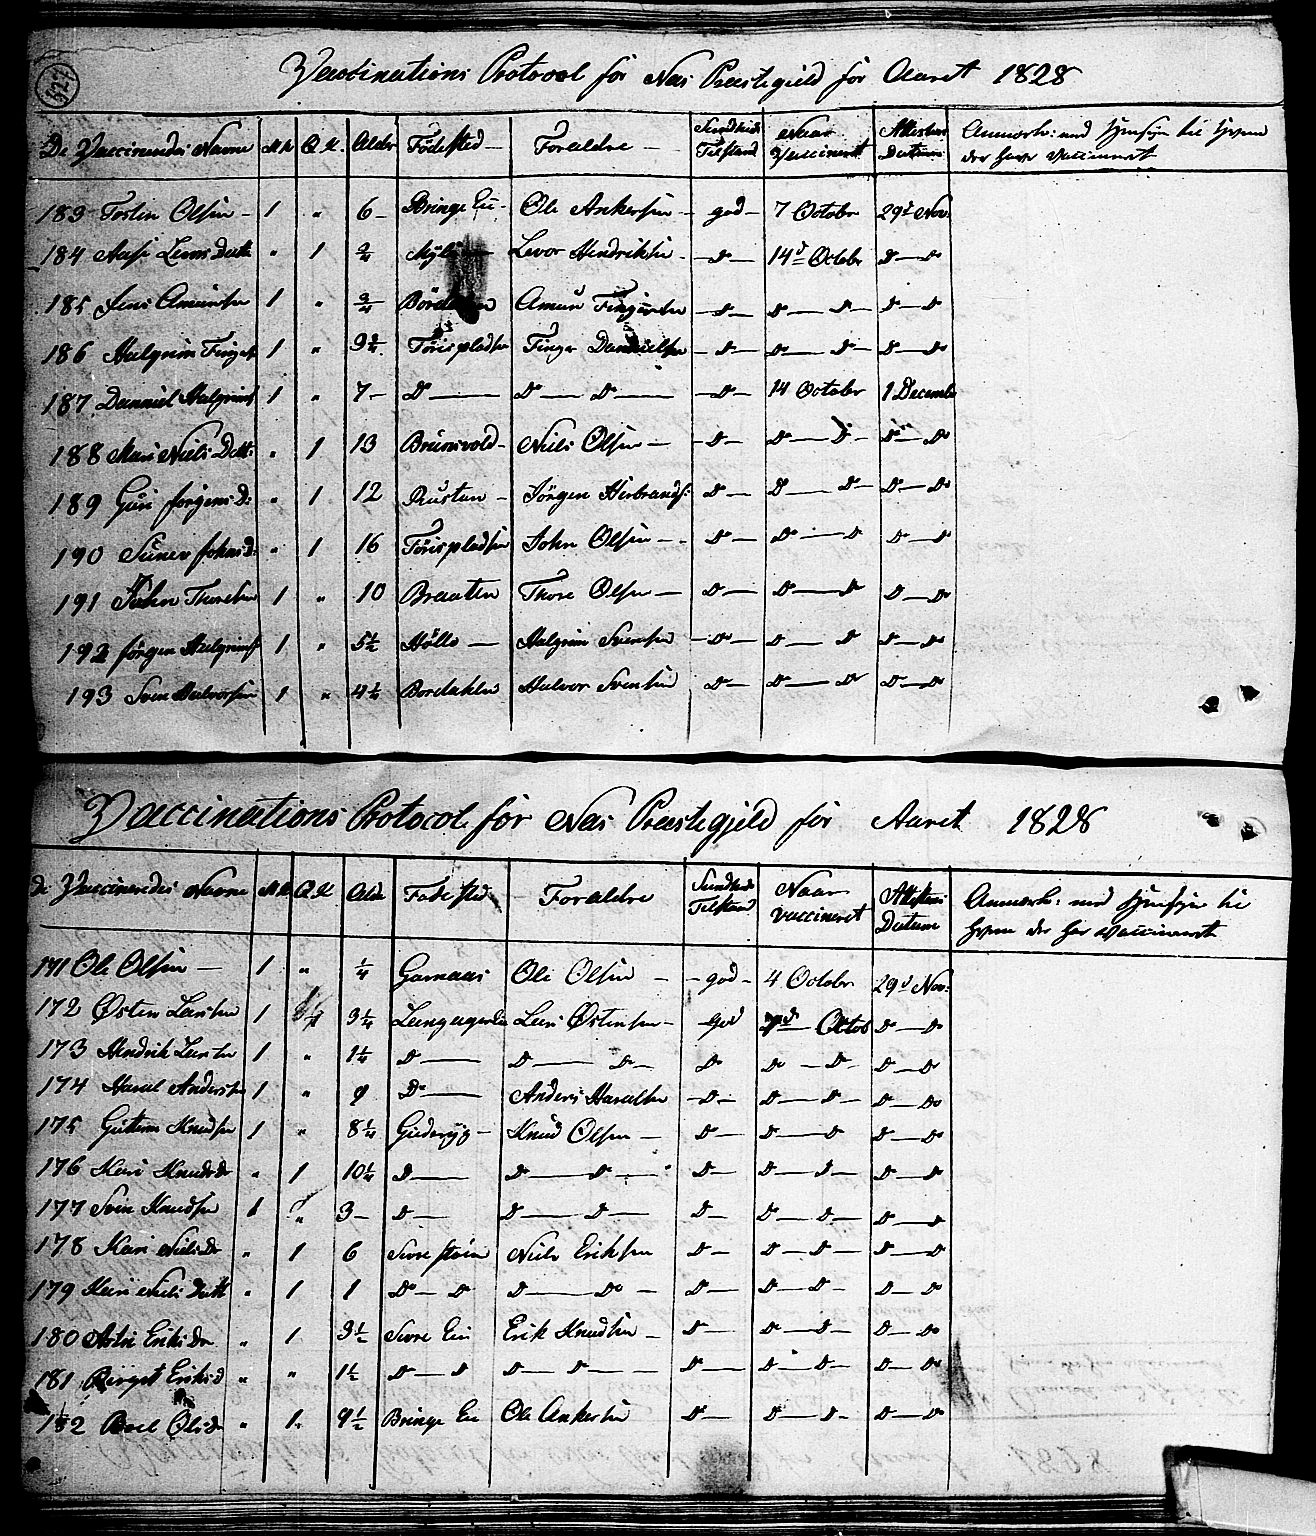 Vaccinations Protocol for Næs Præstegield for Aaret 1828
De Vaccineredes Navne M.K. Q.K. Alder Födested Forældre Sundheds Tilstand Naar Vaccineret Attestens Datum Anmærk: med Hensyn til Hvem der har vaccineret
183 Tosten Olsen 1 " 6 Bringe Eie Ole Ankersen god 7 Octobr 29d Nov.
184 Aase Leversdatt " 1 Levor Hendriksen D 14d Octobr D D
185 Jens Amundsen 1 " 3/4 Amund Fingarsen D D D D D
186 Halgrim Fingers 1 " Torisplads Finger Danielsen D D D D D
187 Danniel Halgrims 1 " 7 D D D D 14 October 1 Decembr
188 Mari Niels Datt: " 1 13 Brunsvold Niels Olsen D D D D D
189 Guri Jörgens D: " 1 12 Rustan Jörgen Herbrands: D D D D D
190 Johns D: " 1 16 Torispladsen John Olsen D D D D D
191 John Thoresen 1 " 10 Braaten Thore Olsen D D D D D
192 Jörgen Halgrims 1 " 5½ Hollo Halgrim Svensen D D D D D
193 Sven Halvorsen 1 " 4½ Bordahlen Halvor Svensen D D D D D
Vaccinations Protocol for Næs Præstegjeld for Aaret 1828
de Vaccineredes Navne M.K. Q.K. Alde Födested Forældre Sundheds Tilstand Naar vaccineret Attestens Datum Anmærk: med Hensyn til hvem der har vaccineret
171 Ole Olsen 1 " ¼ Garnaas Ole Olsen god 4 Octobr 29d Nov:
172 Østen Larsen 1 3¼ Lars Østensen god Octob D D
173 Hendrik Larsen 1 " 1½ D D D D D D D D
174 Haral Andersen 1 " 9 D Anders Haralsen D D D D D
175 Guttorm Knudsen 1 " 8¼ Knud Olsen D D D D D
176 Kari Knudsdr " 1 10¼ D D D D D D D D
177 Sven Knudsen 1 " 3 D D D D D D D D
178 Kari Nielsdr " 1 6 Niels Eriksen D D D D D
179 Kari Niels Datt " 1 1 D D D D D D D D D
180 Astri Eriksdr " 1 3½ Erik Knudsen D D D D D
181 Birget Eriksd " " 1½ D D D D D D D D D
182 Boel Olsdr " 1 9½ Bringe Eie Ole Ankersen D D D D D